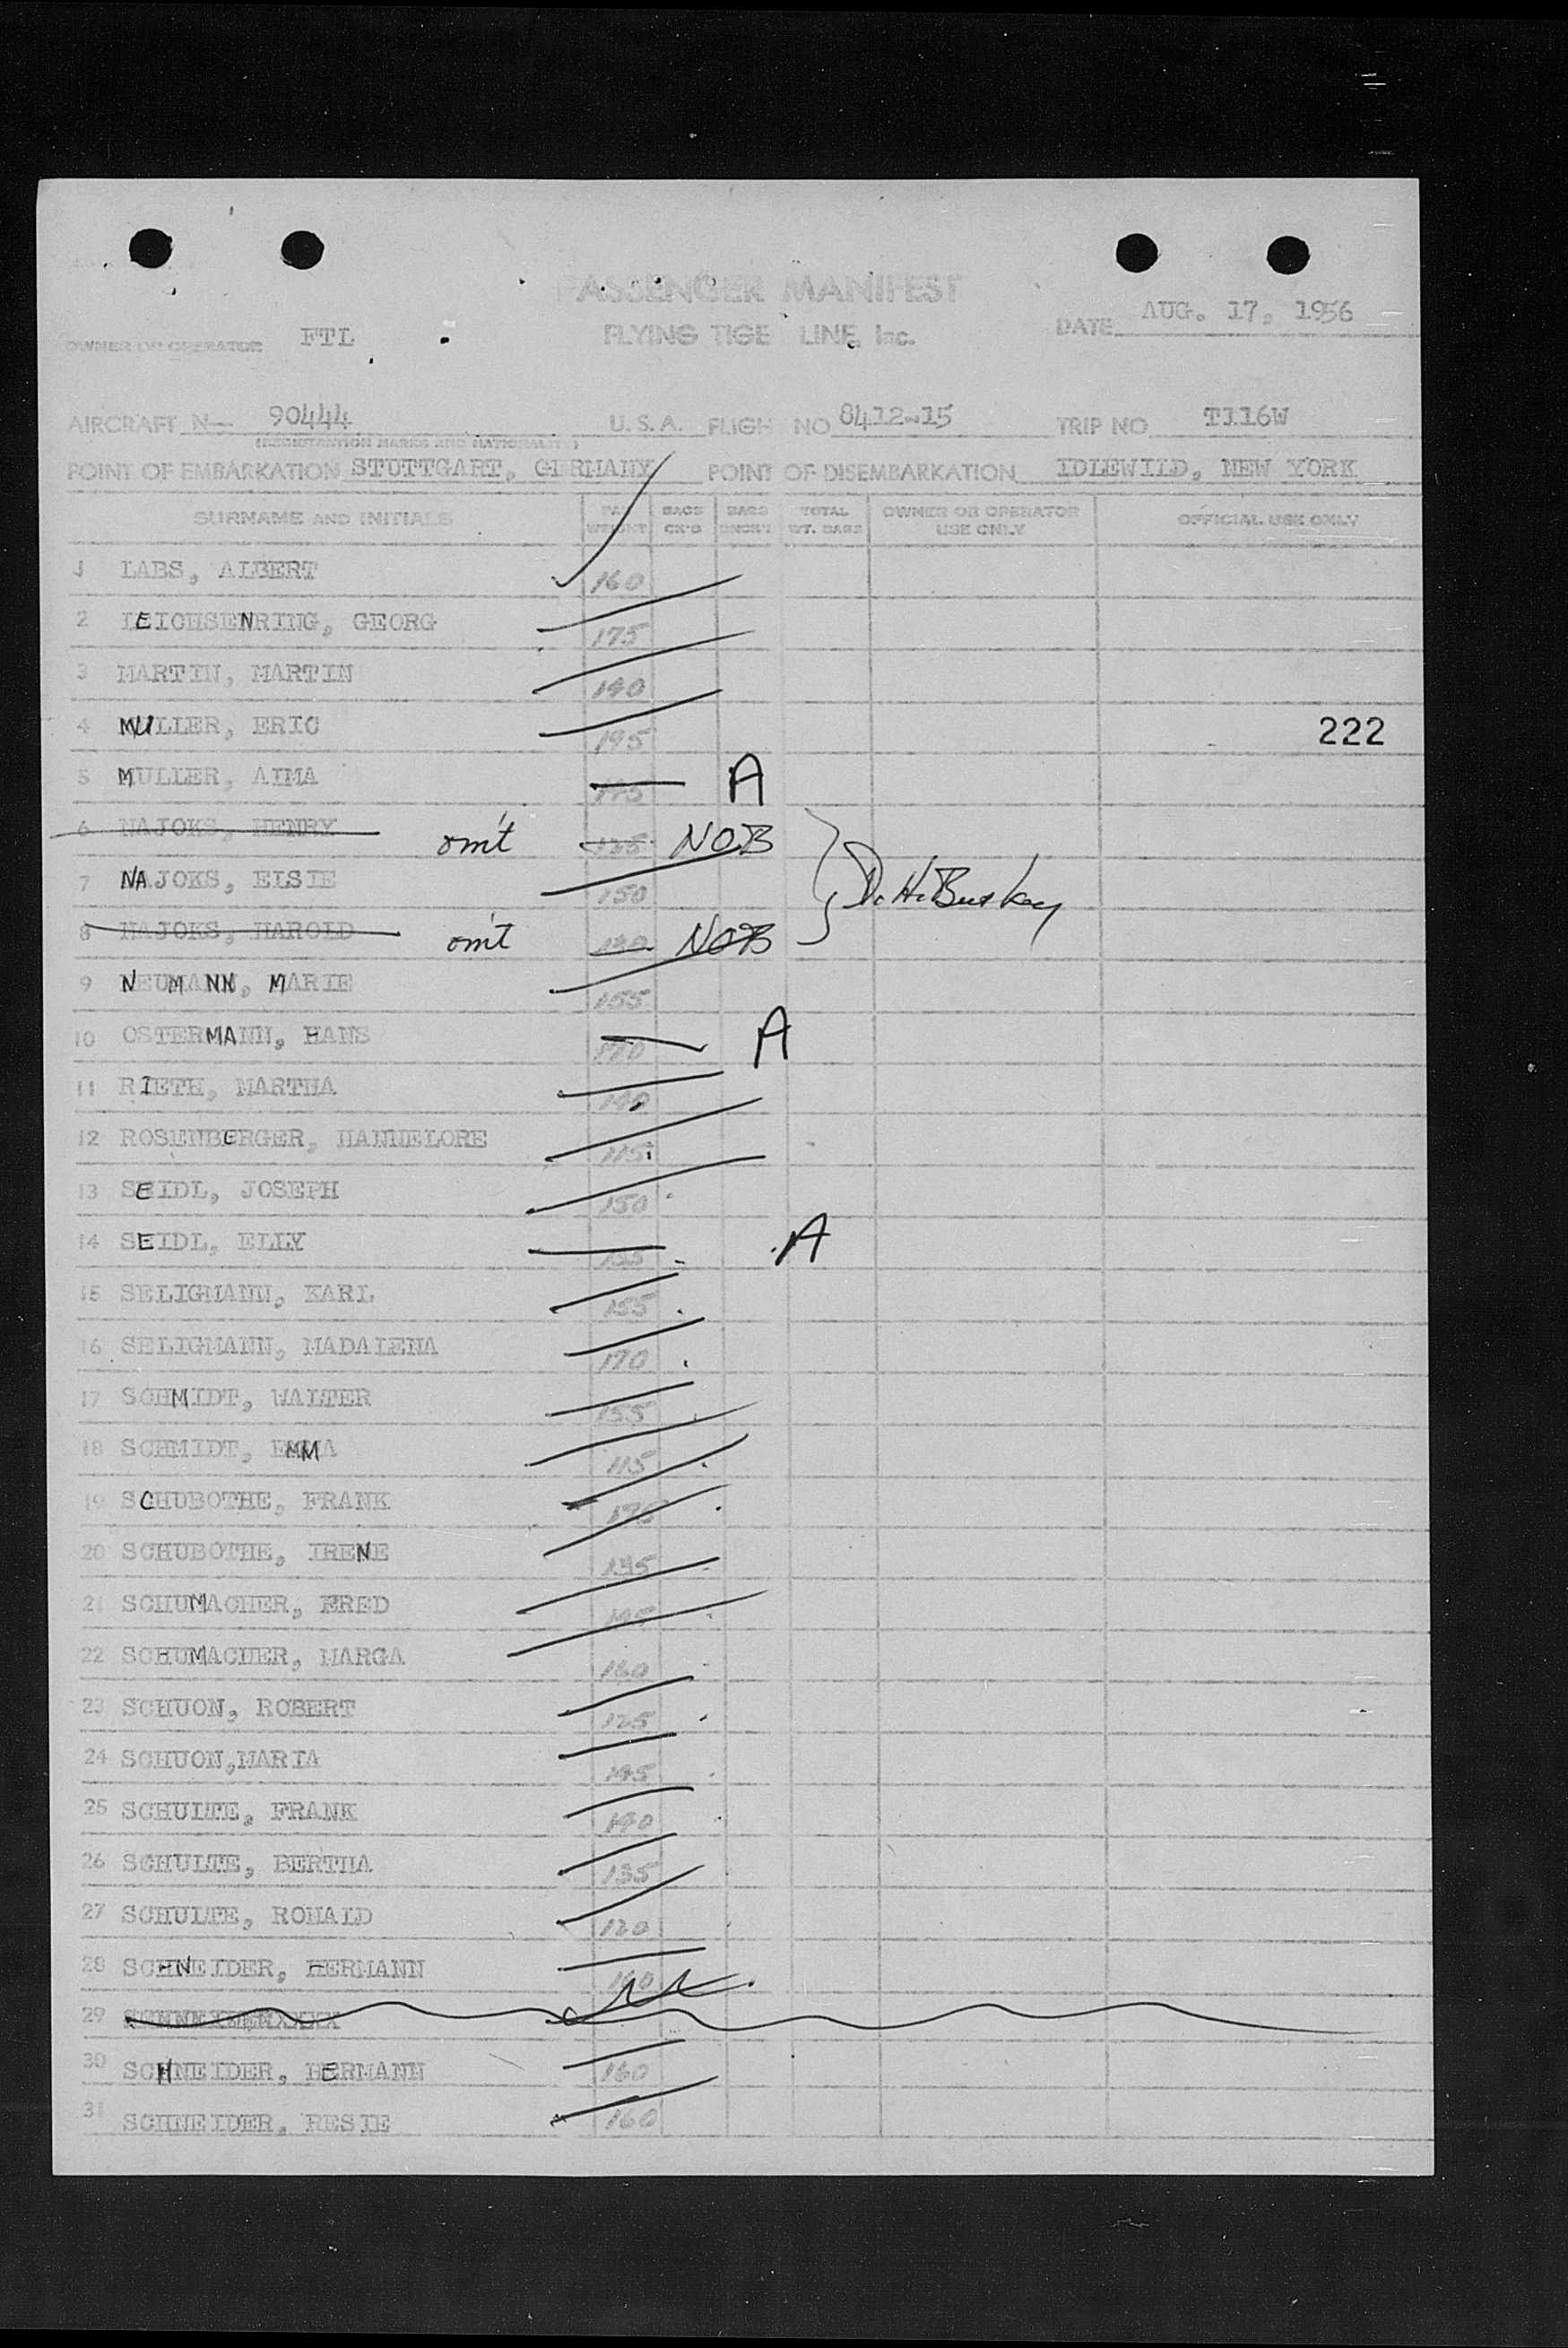 PASSENGER MANIFEST
FLYING TIGE LINE, Inc.
OWNER OR OPERATOR FTL
DATE AUG. 17, 1956
AIRCRAFT N— 90444 U.S.A. FLIGH NO 8412-15 TRIP NO T116W
(REGISTRATION MARKS AND NATIONALITY)
POINT OF EMBARKATION STUTTGART, GERMANY POINT OF DISEMBARKATION IDLEWILD, NEW YORK
SURNAME AND INITIALS PAX WEIGHT BAGS CK'D BAGS UNCK'D TOTAL WT. BAGS OWNER OR OPERATOR USE ONLY OFFICIAL USE ONLY
1 LABS, ALBERT 160
2 LEICHSENRING, GEORG 175
3 MARTIN, MARTIN 190
4 MULLER, ERIC 195 222
5 MULLER, AIMA A
6 NAJOKS, HENRY omit NOB
7 NAJOKS, ELSIE 150
8 NAJOKS, HAROLD omit NOB
9 NEUMANN, MARIE 155
10 OSTERMANN, HANS A
11 RIETH, MARTHA 140
12 ROSENBERGER, HANNELORE 115
13 SEIDL, JOSEPH 150
14 SEIDL, ELLY A
15 SELIGMANN, KARL 155
16 SELIGMANN, MADALENA 170
17 SCHMIDT, WALTER 155
18 SCHMIDT, EMMA 115
19 SCHUBOTHE, FRANK
20 SCHUBOTHE, IRENE 135
21 SCHUMACHER, FRED
22 SCHUMACHER, MARGA 180
23 SCHUON, ROBERT 125
24 SCHUON,MARIA 145
25 SCHULTE, FRANK 190
26 SCHULTE, BERTHA 135
27 SCHULTE, RONALD 120
28 SCHNEIDER, HERMANN 160
29
30 SCHNEIDER, HERMANN 160
31 SCHNEIDER, RESIE 160